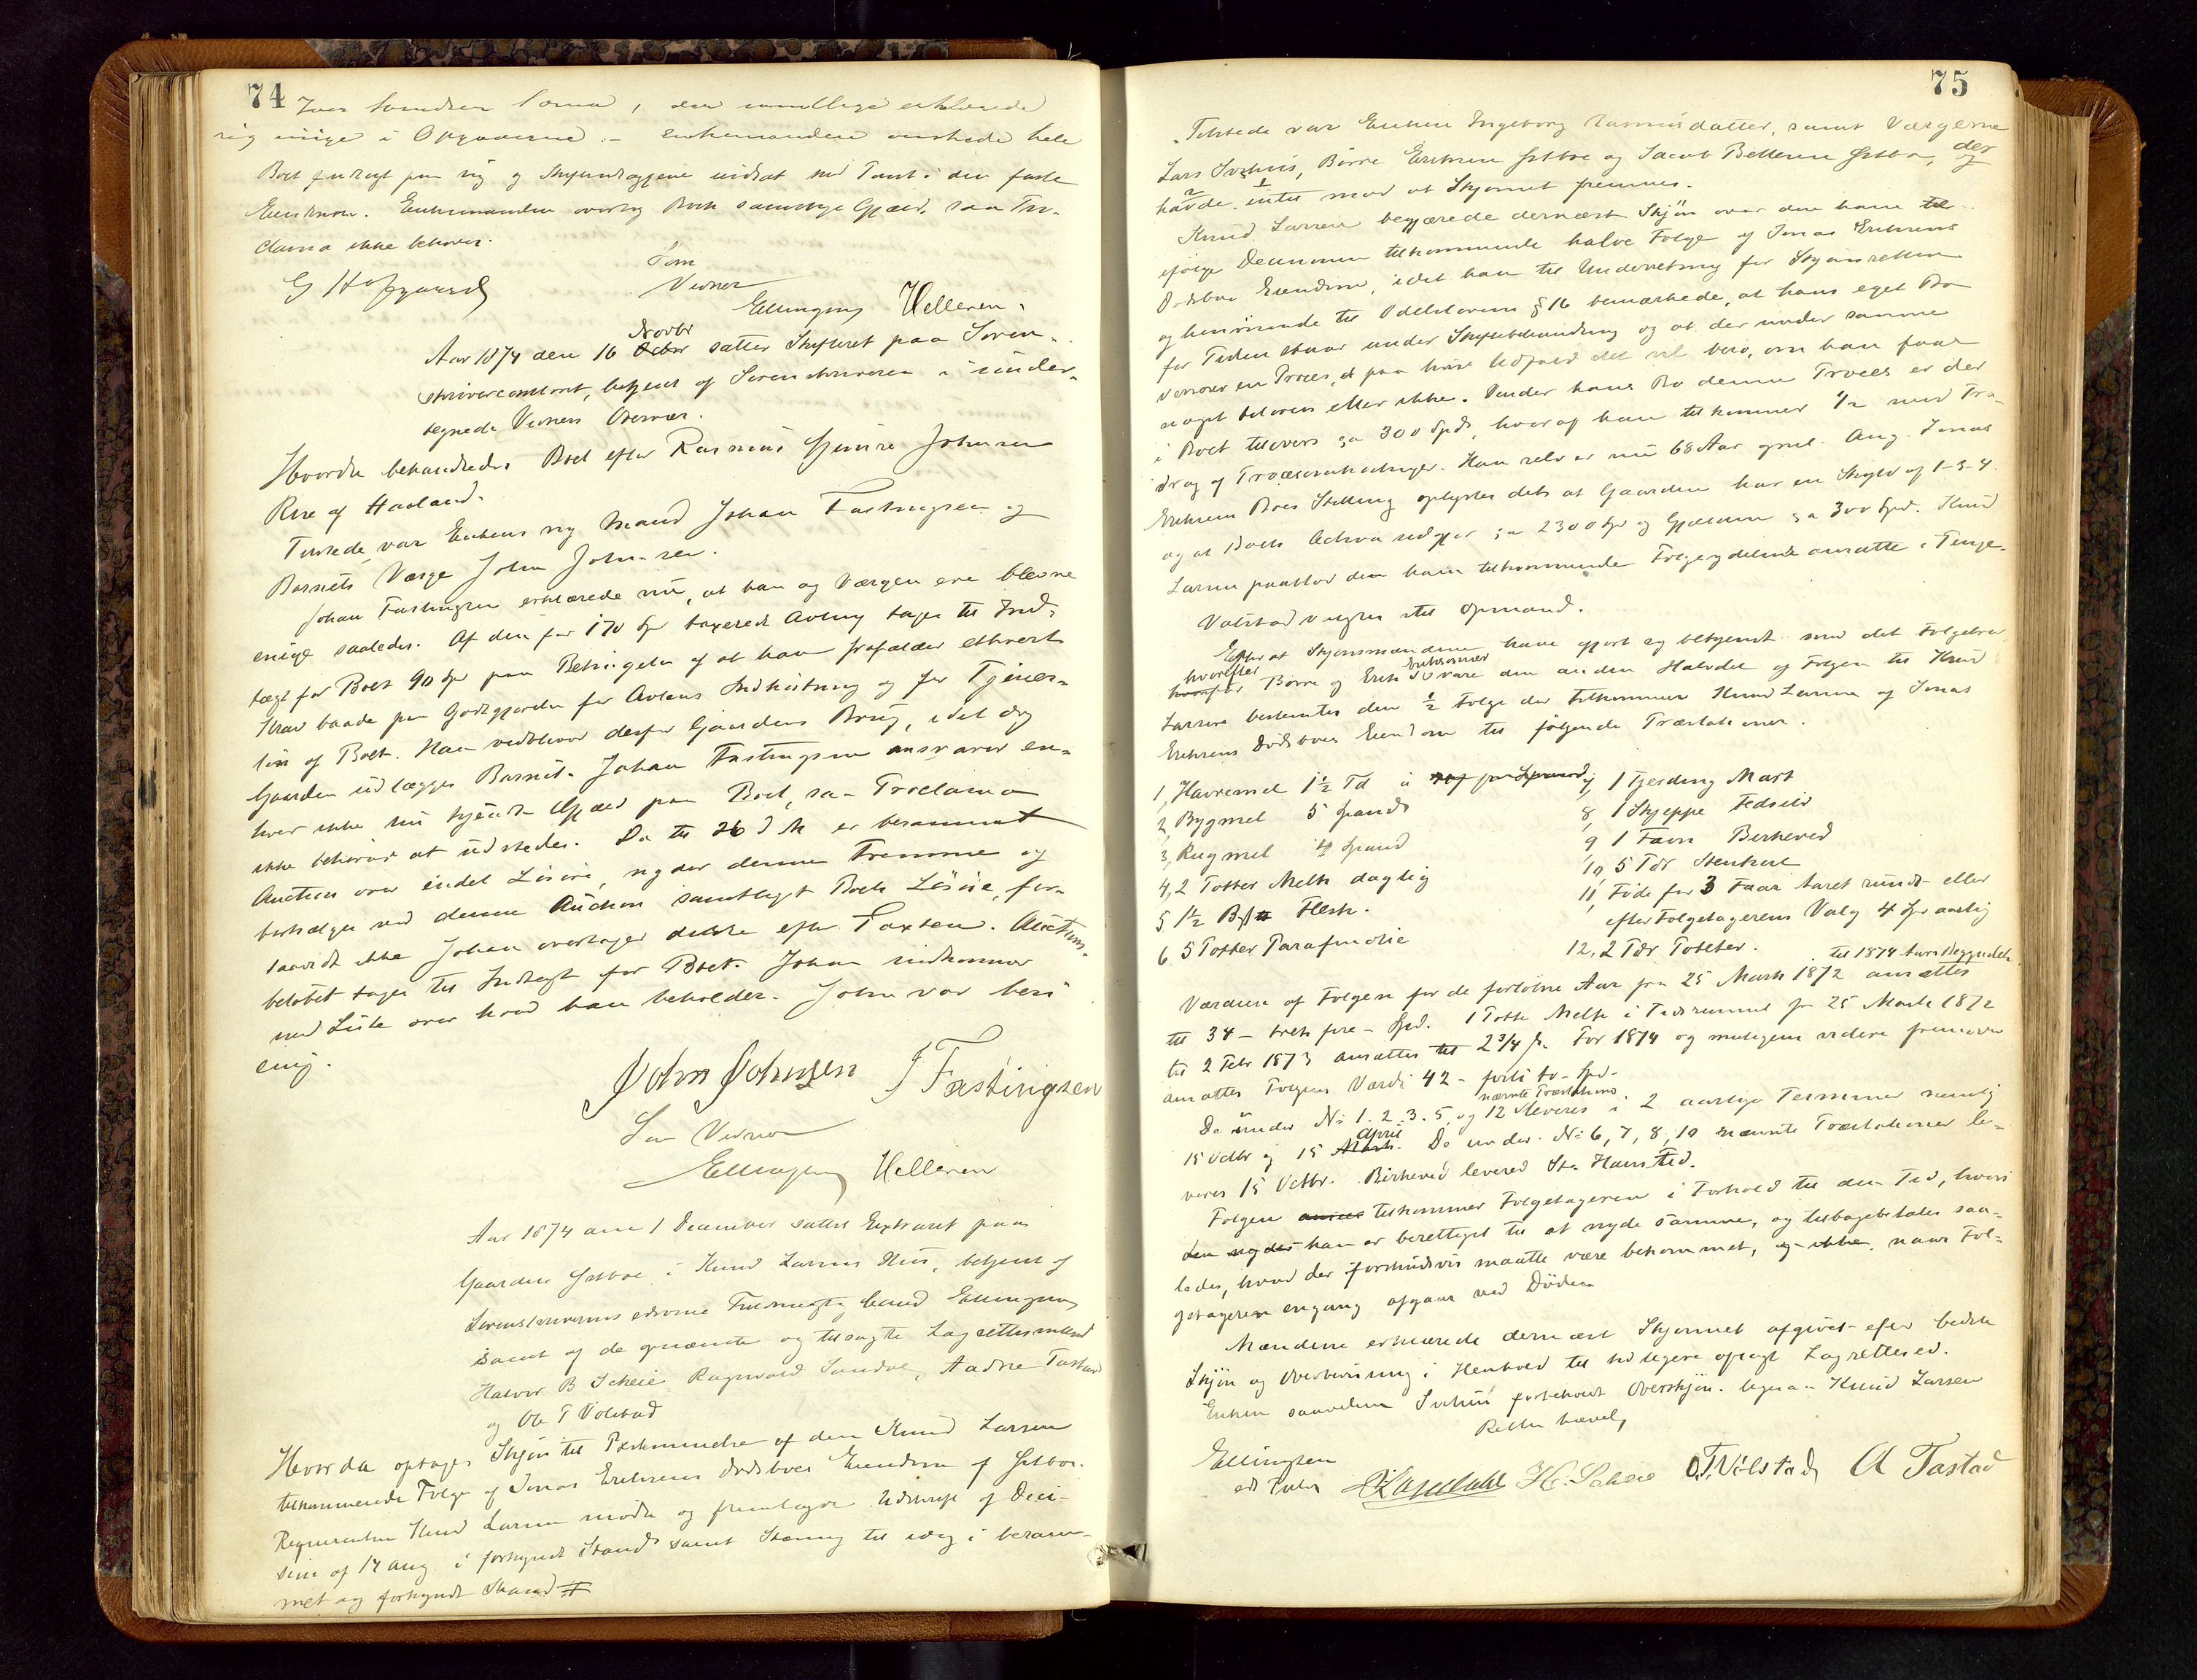 74
Iver Svendsen Soma, der mundtlige erklærede
sig enige i Opgaverne. - enkemanden ønskede hele
Boet for sig og Skyldneren udlagt ved Taxt i den faste
Eiendom. Enkemanden overtog Boets samtlige Gjæld, saa Pro-
clama ikke behøves.
Som
Vidner
Ellingsen Helleren.
Aar 1874 den 16 Novbr sattes Skifteret paa Soren-
skrivercontoret, betjent af Sorenskriveren i under-
tegnede Vidners Overvær.
Hvorda behandledes Boet efter Rasmus Johnsen
Rire af Haaland.
Tilstede var Enkens ny Mand Johan Fastingsen og
Barnets Værge John Johnsen.
Johan Fastingsen erklærede nu, at han og Værgen ere blevne
enige saaledes. Af den for 170 Spd taxerede Avling tages til Ind-
tægt for Boet 90 Spd paa Betingelse af at han frafalder ethvert
Krav baade paa Godtgjørelse for Avlens Indhøstning og for Tjener-
løn af Boet. Han vedbliver derfor Gaardens Brug, idet dog
Gaarden udlægges Barnet. Johan Fastingsen ansvarer en-
hver ikke nu kjendt Gjæld paa Boet, saa Proclama
ikke behøver at udstedes. Da til 26 d M er berammet
Auction over endel Løsøre, nyder denne Fremme og
bortsælges ved denne Auction samtligt Boets Løsøre, for-
saavidt ikke Johan overtager dette efter Taxten. Auctions-
beløbet tages til Indtægt for Boet. Johan indkommer
med Liste over hvad han beholder. John var heri
enig.
John Johnsen J Fastingsen
Som Vidner
Ellingsen Helleren
Aar 1874 den 1 December sattes Extraret paa
Gaarden Østboe i Knud Larsens Hus, betjent af
Sorenskriverens edsvorne Fuldmægtig Ellingsen
samt af de opnævnte og tilsagte Lagrettesmænd
Halvor B Scheie Ragnvald Sandve, Aadne Tastad
og Ole T Volstad
Hvorda optoges Skjøn til Bestemmelse af den Knud Larsen
tilkommende Folge af Jonas Eriksens Dødsboes Eiendom af Østboe.
Requirenten Knud Larsen mødte og fremlagde Udskrift af Deci-
sion af 14 Aug. i forkyndt Stand samt Stævning til idag i beram-
met og forkyndt Stand
75
Tilstede var Enken Ingeborg Rasmusdatter, samt Værgerne
Lars Svihus, Børre Eriksen Østboe og Jacob Bertelsen Østbø, der
havde intet mod at Skjønnet fremmes.
Knud Larsen begjærede dernæst Skjøn over den ham til-
ifølge Decisionen tilkommende halve Folge af Jonas Eriksens
Dødsboes Eiendom, idet han til Underretning for Skjønsretten
og henvisende til Odelslovens § 16 bemærkede, at hans eget Bo
for Tiden staar under Skiftebehandling og at der under samme
verserer en Proces, paa hvis Udfald det vil bero, om han faar
noget tilovers eller ikke. Under hans Bo denne Proces er der
i Boet tilovers ca 300 Spd, hvoraf han tilkommer 1/2 med Fra-
drag af Procesomkostninger. Han selv er nu 68 Aar gml. Ang. Jonas
Eriksens Boes Stilling oplystes dets at Gaarden har en Skyld af 1-3-4.
og at Boets Activa udgjør ca 2300 Spd og Gjælden ca 300 Spd. Knud
Larsen paastod den ham tilkommende Folgeydelse ansatte i Penge.
Volstad valgtes til Opmand.
Efter at Skjønsmændene have gjort sig bekjendt med det Folgebrev
hvorefter Børre og Erik Eriksønner svare den anden Halvdel af Folgen til Knud
Larsen bestemtes den 1/2 Folge der tilkommer Knud Larsen af Jonas
Eriksens Dødsboes Eiendom til følgende Præstationer.
1, Havremel 1 1/2 Td
2, Bygmel 5 Spand
3, Rugmel 4 Spand
4, 2 Potter Melk daglig
5 1 1/2 Flesk.
6 5 Potter Parafinolie
7, 1 Fjerding Mort
8, 1 Skjeppe Fedsild
9 1 Favn Birkeved
10, 5 Tdr Stenkul
11, Føde for 3 Faar Aaret rundt eller
efter Folgetagerens Valg 4 Spd aarlig
12, 2 Tdr Poteter.
til 1874 Aars Begyndelse
Værdien af Folgen for de forløbne Aar fra 25 Marts 1872 ansættes
til 34 - treti fire - Spd. 1 Potte Melk i Tidsrummet fra 25 Marts 1872
til 2 Febr 1873 ansættes til 2 3/4 s. For 1874 og muligens videre fremover
ansættes Folgens Værdi 42 - førti to - Spd.
De under No 1. 2. 3. 5. og 12 nævnte Præstationer leveres i 2 aarlige Terminer nemlig
15 Octbr og 15 April. De under No 6, 7, 8, 10 nævnte Præstationer le-
veres 15 Octbr. Birkeved leveres St. Hans Tid.
Folgen tilkommer Folgetageren i Forhold til den Tid, hvori
han er berettiget til at nyde samme, og tilbagebetales saa-
ledes, hvad der forskudsvis maatte være bekommet, naar Fol-
getageren engang afgaar ved Døden
Mændene erklærede dernæst Skjønnet afgivet efter bedste
Skjøn og Overbevisning i Henhold til tidligere aflagt Lagrettesed.
Enken saavelsom Svihus forbeholdt Overskjøn. ligesaa Knud Larsen
Retten hævet,
Ellingsen
eds Fuldm H. Scheie O. T. Volstad A Tastad